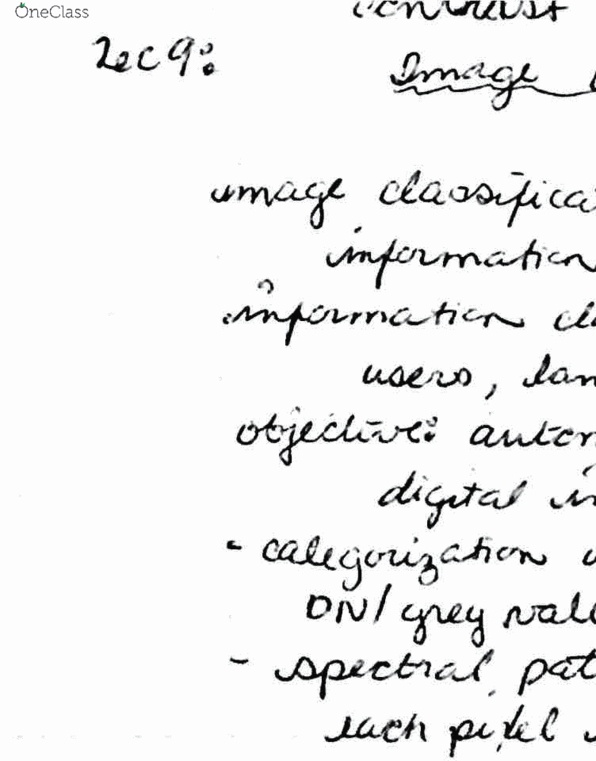 OneClass
contrast
Lec 9:
Image
image classifica
information
information cla
users, lan
objective: autom
digital in
- categorization
DN/ grey valu
- spectral pat
each pixel